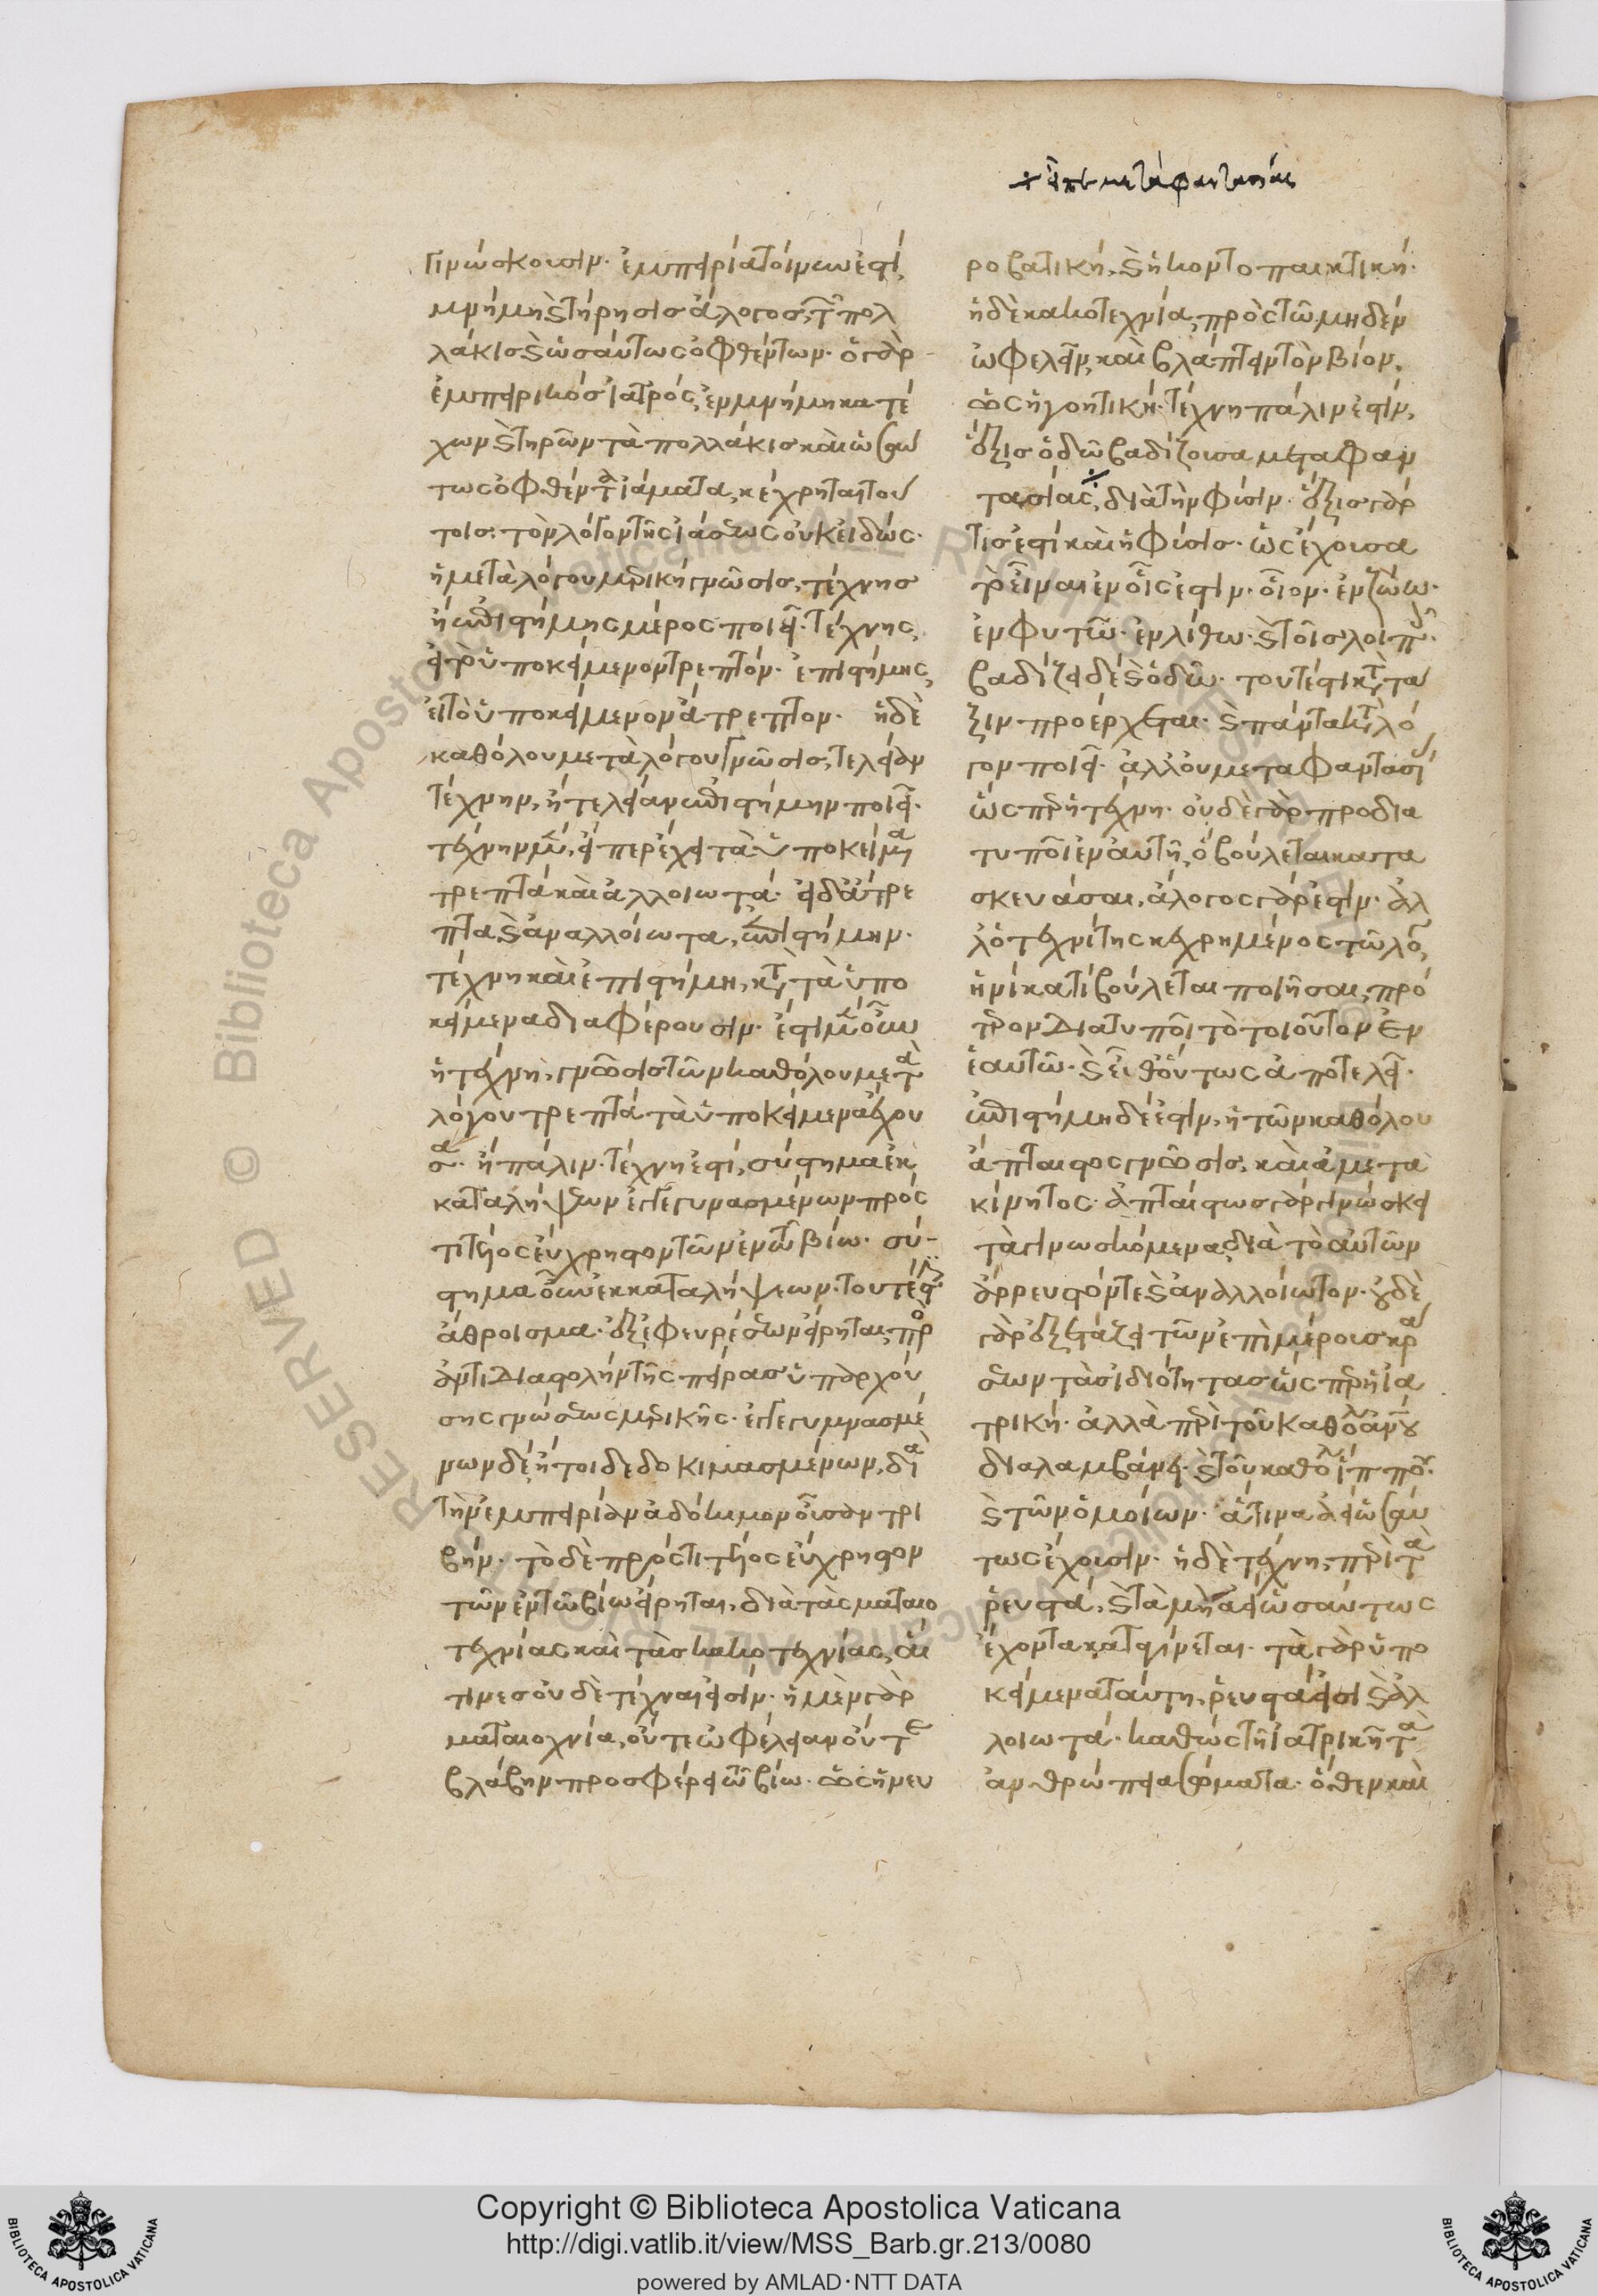 ÷ ἤγουν μετὰ φαντασίας
γινώσκουσιν· ἐμπειρία τοίνυν ἐστὶ
μνήμη καὶ τήρησις ἄλογος, τῶν πολ
λάκις καὶ ὡσαύτως ὀφθέντων· ὁ γὰρ
ἐμπειρικὸς ἰατρὸς, ἐν μνήμῃ κατέ
χων καὶ τηρῶν τὰ πολλάκις καὶ ὡσαύ
τως ὀφθέντα ἰάματα, κέχρηται τού
τοις· τὸν λόγον τῆς ἰάσεως οὐκ εἰδώς·
ἡ μετὰ λόγου μερικὴ γνῶσις, τέχνης
ἢ ἐπιστήμης μέρος ποιεῖ· τέχνης,
εἰ τὸ ὑποκείμενον τρεπτόν· ἐπιστήμης,
εἰ τὸ ὑποκείμενον ἄτρεπτον· ἡ δὲ
καθόλου μετὰ λόγου γνῶσις, τελείαν
τέχνην, ἢ τελείαν ἐπιστήμην ποιεῖ·
τέχνην μὲν, εἴπερ ἔχει τὰ ὑποκείμενα
τρεπτὰ καὶ ἀλλοιωτά· εἰ δὲ ἄτρε
πτα καὶ ἀναλλοίωτα, ἐπιστήμην·
τέχνη καὶ ἐπιστήμη, κατὰ τὰ ὑπο
κείμενα διαφέρουσιν· ἔστι μὲν οὖν
ἡ τέχνη, γνῶσις τῶν καθόλου μετὰ
λόγου τρεπτὰ τὰ ὑποκείμενα ἔχου
σα· ἢ πάλιν· τέχνη ἐστὶ, σύστημα ἐκ
καταλήψεων ἐγγεγυμνασμένων πρός
τι τέλος εὔχρηστον τῶν ἐν τῷ βίῳ· σύ-
στημα οὖν ἐκ καταλήψεων· τουτέστιν
ἄθροισμα· ἐξ ἐφευρέσεων εἴρηται, πρὸς
ἀντιδιαστολὴν τῆς πείρας ὑπαρχού
σης γνώσεως μερικῆς· ἐγγεγυμνασμέ
νων δὲ, ἤτοι δεδοκιμασμένων, διὰ
τὴν ἐμπειρίαν ἀδόκιμον οὖσαν τρι
βήν· τὸ δὲ πρός τι τέλος εὔχρηστον
τῶν ἐν τῷ βίῳ εἴρηται, διὰ τὰς ματαιο
τεχνίας καὶ τὰς κακοτεχνίας, αἵ
τινες οὐδὲ τέχναι εἰσίν· ἡ μὲν γὰρ
ματαιοτεχνία, οὔτε ὠφέλειαν οὔτε
βλάβην προσφέρει τῷ βίῳ· ὡς ἡ νευ
ροβατικὴ, καὶ ἡ κοντοπαικτική·
ἡ δὲ κακοτεχνία, πρὸς τῷ μηδὲν
ὠφελεῖν, καὶ βλάπτει τὸν βίον,
ὡς ἡ γοητική· τέχνη πάλιν ἐστὶν,
ἕξις ὁδῷ βαδίζουσα μετὰ φαν
τασίας÷, διὰ τὴν φύσιν· ἕξις γάρ
τις ἐστὶ καὶ ἡ φύσις· ὡς ἔχουσα
τὸ εἶναι ἐν οἷς ἐστιν· οἷον· ἐν ζώῳ·
ἐν φυτῷ· ἐν λίθῳ· καὶ τοῖς λοιποῖς·
βαδίζει δὲ καὶ ὁδῷ· τουτέστι κατὰ τά
ξιν προέρχεται· καὶ πάντα κατὰ λό
γον ποιεῖ· ἀλλ' οὐ μετὰ φαντασίας
ὥσπερ ἡ τέχνη· οὐδὲ γὰρ προδια
τυποῖ ἐν αὐτῇ, ὃ βούλεται κατα
σκευάσαι, ἄλογος γάρ ἐστιν· ἀλ
λ' ὁ τεχνίτης κεχρημένος τῷ λόγῳ,
ἡνίκα τι βούλεται ποιῆσαι, πρό
τερον διατυποῖ τὸ τοιοῦτον ἐν
ἑαυτῷ· καὶ εἶθ' οὕτως ἀποτελεῖ·
ἐπιστήμη δέ ἐστιν, ἡ τῶν καθόλου
ἄπταιστος γνῶσις, καὶ ἀμετα
κίνητος· ἀπταίστως γὰρ γινώσκει
τὰ γινωσκόμενα, διὰ τὸ αὐτῶν
ἄρρευστόν τε καὶ ἀναλλοίωτον· οὐδὲ
γὰρ ἐξετάζει τῶν ἐπὶ μέρους κρά
σεων τὰς ἰδιότητας ὥσπερ ἡ ἰα
τρική· ἀλλὰ περὶ τοῦ καθόλου ἀνθρώπου
διαλαμβάνει· καὶ τοῦ καθόλου ἵππου·
καὶ τῶν ὁμοίων· ἅτινα ἀεὶ ὡσαύ
τως ἔχουσιν· ἡ δὲ τέχνη, περὶ τὰ
ῥευστὰ, καὶ τὰ μὴ ἀεὶ ὡσαύτως
ἔχοντα καταγίνεται· τὰ γὰρ ὑπο
κείμενα ταύτῃ, ῥευστά εἰσι καὶ ἀλ
λοιωτά· καθὼς τῇ ἰατρικῇ τὰ
ἀνθρώπεια σώματα· ὅθεν καὶ
Copyright © Biblioteca Apostolica Vaticana
http://digi.vatlib.it/view/MSS_Barb.gr.213/0080
powered by AMLAD·NTT DATA